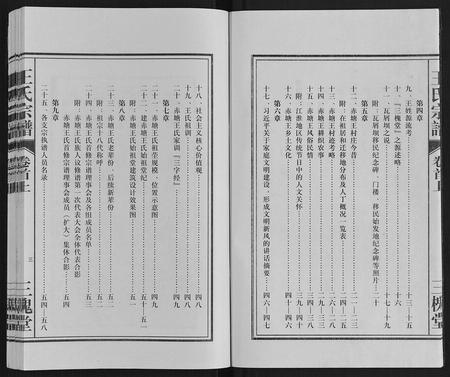 第四章
九、王姓源流考……一三—一五
十、『三槐堂』之源述略……一六
十一、瓦屑坝之说……一七—一九
附：瓦屑坝移民纪念碑、门楼、移民始发地纪念碑等照片…二十
第五章
十二、赤塘王村庄今昔……二一—二三
附：在祖居和迁移地分布及人丁概况一览表
十三、赤塘王村迹考略
十四、赤塘王耕织农事
十五、赤塘王风俗民情
附：江淮地区传统节日中的人文关怀
十六、赤塘王乡土文化
第六章
十七、习近平关于家庭文明建设、形成文明新风的讲话摘要…四六—四七
王氏宗谱
三槐堂
十八、社会主义核心价值观……四八
十九、王氏家训……四八
二十、赤塘王氏家训『三字经』……四九
第七章
二十一、赤塘王氏祖茔规模、位置示意图……四九
二十二、建赤塘王氏始祖堂纪……五十—五一
附：赤塘王氏始祖堂建筑设计效果图……五一
第八章
二十三、赤塘王氏老辈份、后续新辈份……五二
附：祖宗十八代称呼……五二
二十四、赤塘王氏首修宗谱理事会及各组成员名单……五三
附：赤塘王氏族人议修谱第一次代表大会全体代表合影
赤塘王氏首修宗谱理事会成员（扩大）集体合影……五四
第九章
二十五、各支宗执谱人员名录……五四—五八
王氏宗谱
卷首上
三
三槐堂